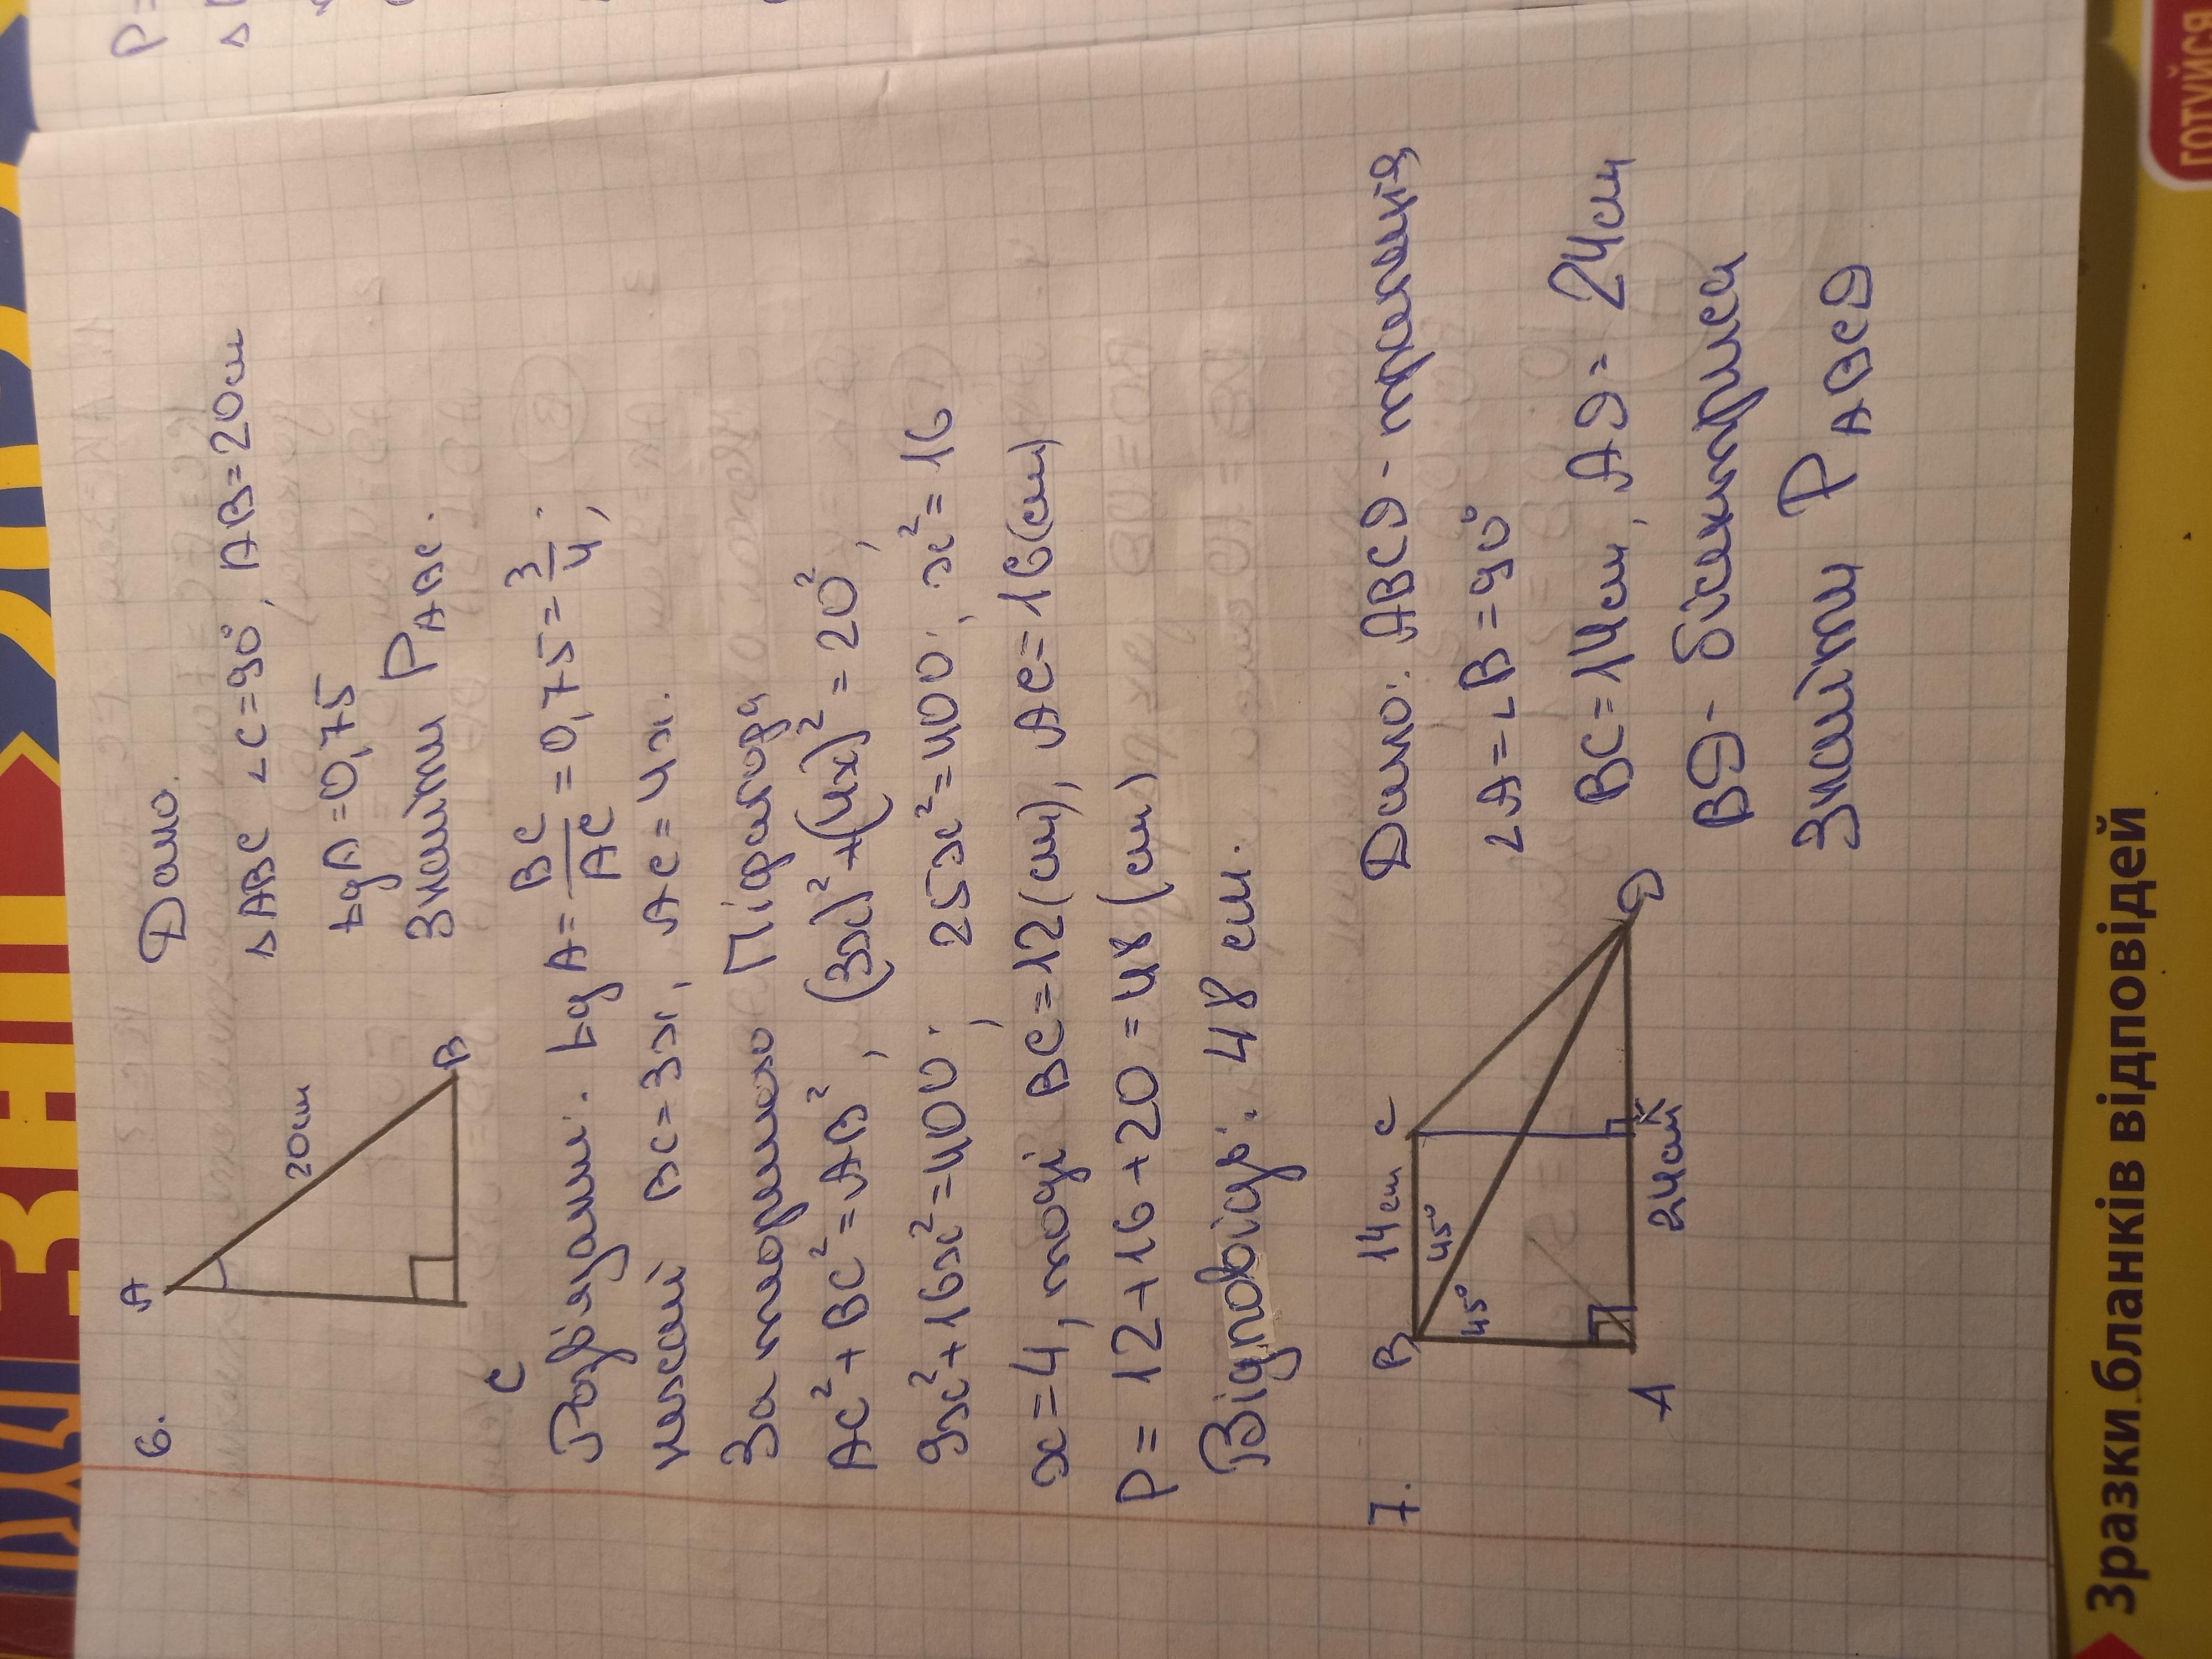 6.
Дано.
△ABC ∠C=90°, AB=20см
tgA=0,75
Знайти P ABC.
A
20см
B
C
Розв'язання. tgA=BC/AC=0,75=3/4;
нехай BC=3x, AC=4x.
За теоремою Піфагора
AC²+BC²=AB², (3x)²+(4x)²=20²,
9x²+16x²=400; 25x²=400; x²=16
x=4, тоді BC=12(см), AC=16(см)
P=12+16+20=48(см)
Відповідь: 48 см.
7.
B
14см
C
45°
45°
A
24см
K
D
Дано: ABCD-трапеція
∠A=∠B=90°
BC=14см, AD=24см
BD-бісектриса
Знайти P ABCD
Зразки бланків відповідей
ГОТУЙСЯ